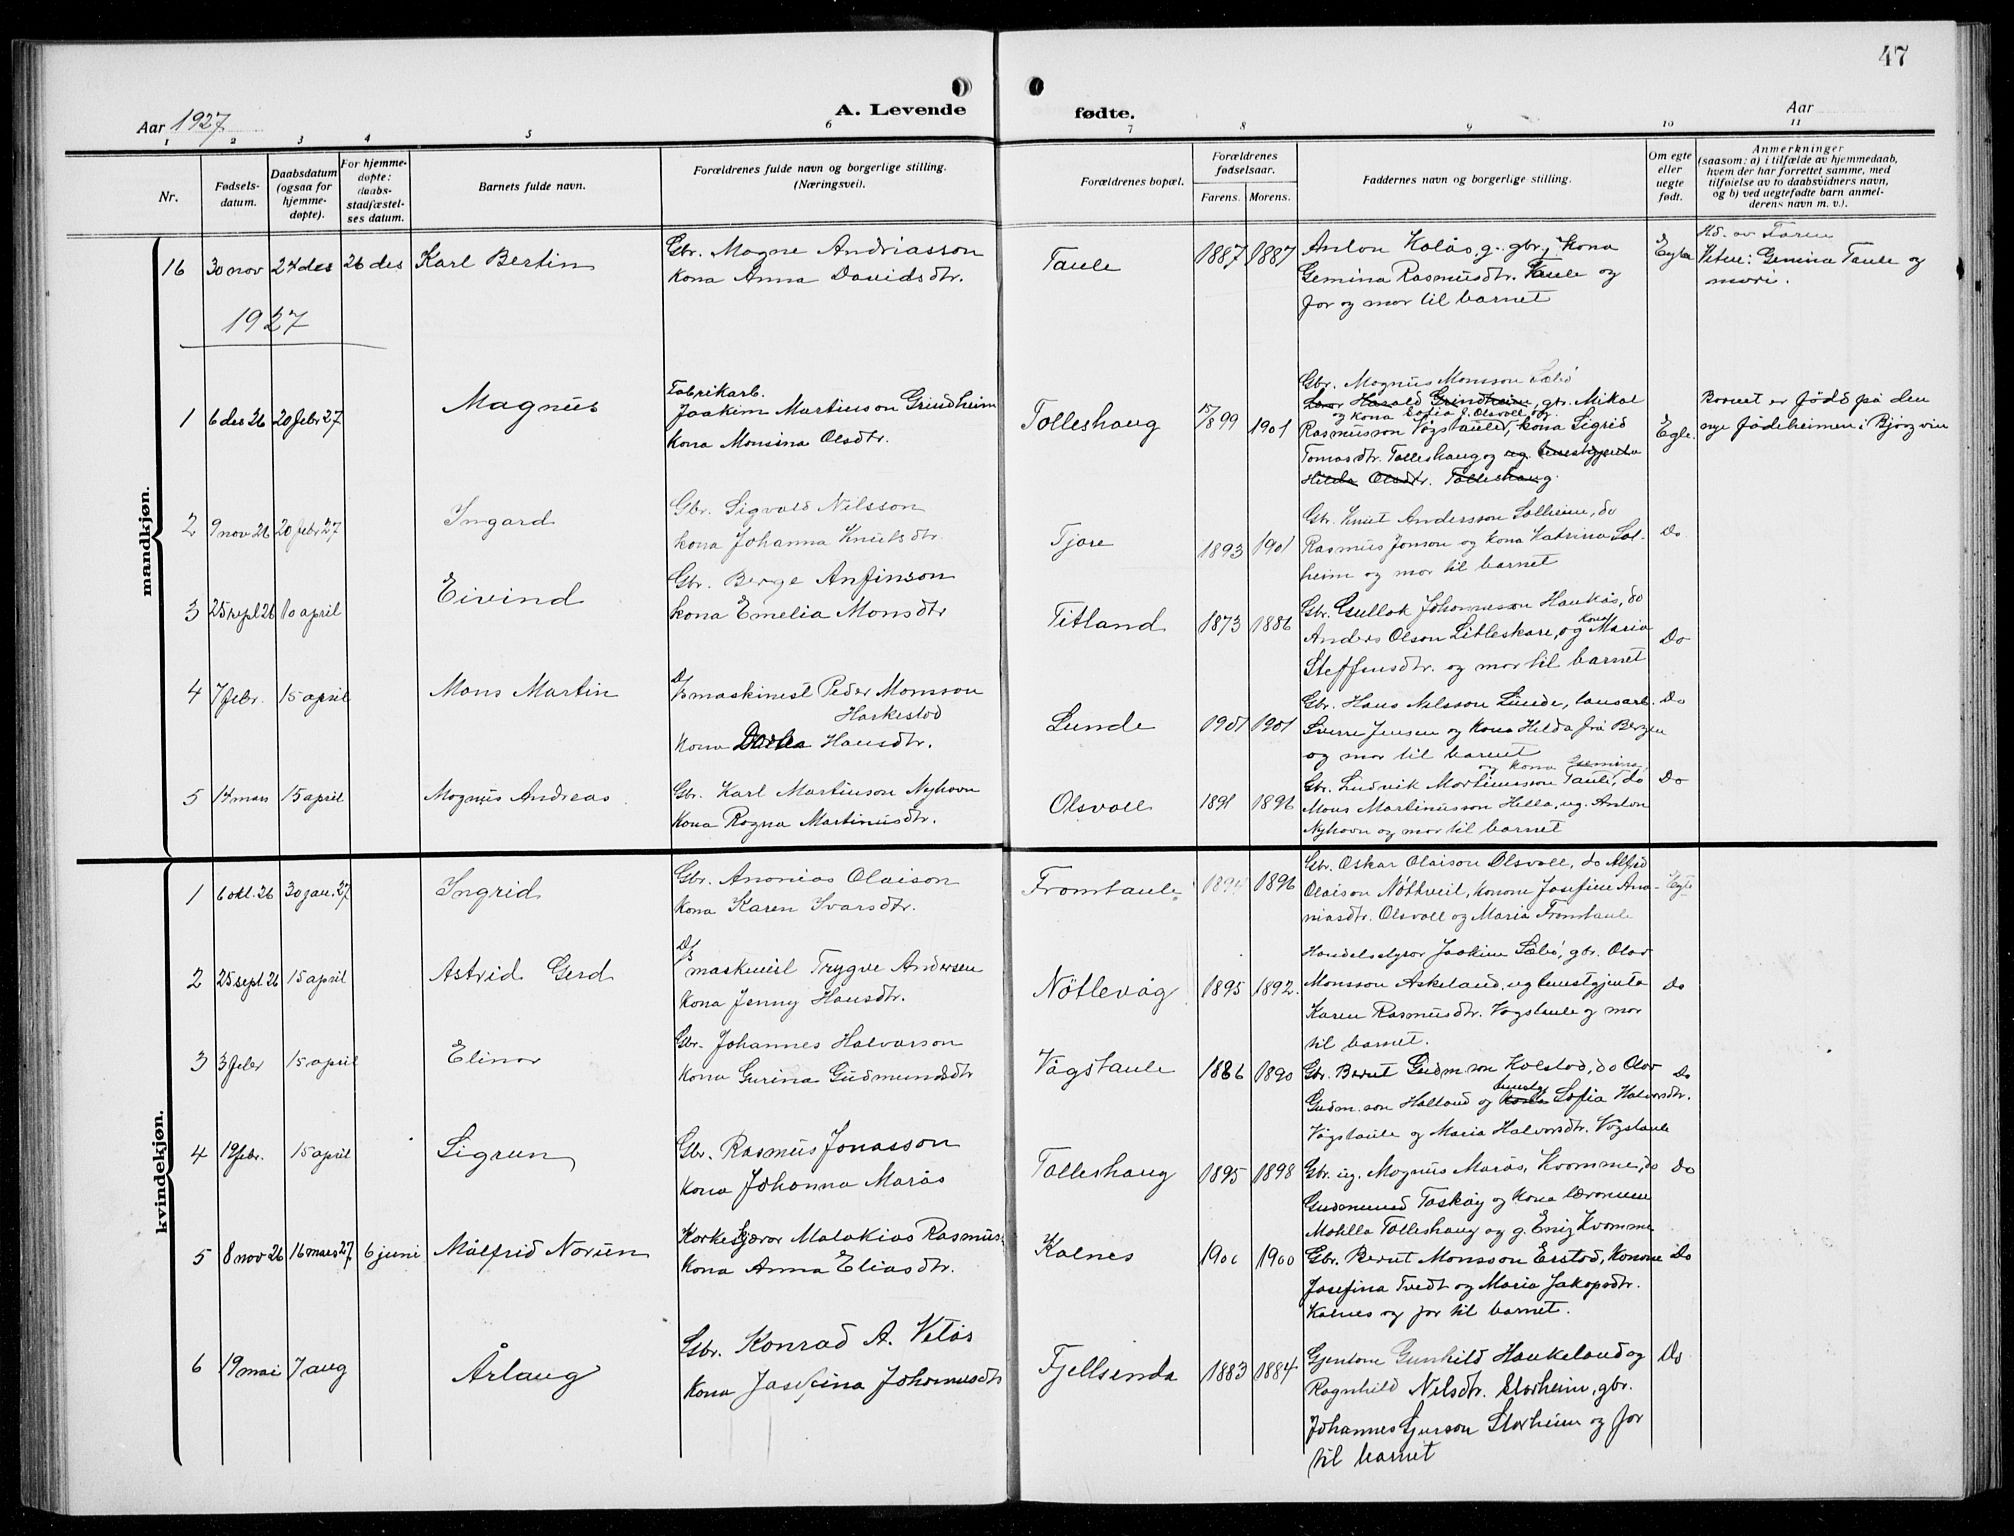 47
Aar 1927
A. Levende
fødte.
Aar
1 2 3 4 5 6 7 8 9 10 11
Nr.
Fødsels-
datum.
Daabsdatum
(ogsaa for
hjemme-
døpte).
For hjemme-
døpte:
daabs-
stadfæstel-
ses datum.
Barnets fulde navn.
Forældrenes fulde navn og borgerlige stilling.
(Næringsvei).
Forældrenes bopæl.
Forældrenes
fødselsaar.
Farens. Morens.
Faddernes navn og borgerlige stilling.
Om egte
eller
uegte
født.
Anmerkninger
(saasom: a) i tilfælde av hjemmedaab,
hvem der har forrettet samme, med
tilføielse av to daabsvidners navn,
og b) ved uegtefødte barn anmel-
derens navn m. v.).
mandkjøn.
16 30 nov 24 des 26 des Karl Bertin
Gbr. Magne Andriasson
kona Anna Davidsdtr.
Taule 1887 1887
Anton Kolås g. gbr, kona
Gemina Rasmusdtr. Taule og
for og mor til barnet
Egte
Hd. av Faren
Vitne: Gemina Taule og
mori.
1927
1 6 des 26 20 febr 27 Magnus
Fabrikarb.
Joakim Martinson Grindheim
kona Monsina Olsdtr.
Tolleshaug 99 1901
Gbr. Magnus Monsson Sæbö
Harald Grindheim, gr. Mikal
og kona Sofia J. Olsvoll og
Rasmusson Vågstaule, kona Sigrid
Tomasdtr. Tolleshaug og ug. tenestgjenta
Hilda Olsdtr. Tolleshaug.
Egte.
Barnet er född på den
nye födeheimen i Björgvin
2 9 nov 26 20 febr 27 Ingard
Gbr. Sigvald Nilsson
kona Johanna Knutsdtr.
Tjore 1893 1901
Gbr. Knut Andersson Solheim, do
Rasmus Jonson og kona Katrina Sol-
heim og mor til barnet
Do
3 25 sept 26 10 april Eivind
Gbr. Berge Anfinson
kona Emelia Monsdtr
Titland 1873 1886
Gbr. Gullak Johannesson Haukås, do
Anders Olson Litleskare, og kona Maria
Steffensdtr. og mor til barnet
Do
4 7 febr. 15 april Mons Martin
D/S maskinist Peder Monsson
Harkestad
kona Dortea Hansdtr.
Lunde 1901 1901
Gbr. Hans Nilsson Lunde, lausarb.
Sverre Jensen og kona Hilda frå Bergen
og mor til barnet
Do
5 14 mars 15 april Magnus Andreas
Gbr. Karl Martinson Nyhovn
kona Ragna Martinusdtr.
Olsvoll 1891 1896
og kona Gemina,
Gbr. Ludvik Martinusson Taule, do
Mons Martinusson Hilla, ug. Anton
Nyhovn og mor til barnet
Do
kvindekjøn.
1 6 okt. 26 30 jan. 27 Ingrid
Gbr. Ananias Olaison
kona Karen Ivarsdtr.
Fromtaule 1896
Gbr. Oskar Olaison Olsvoll, do Alfred
Olaison Nöttveit, konone Josefine Ana-
niasdtr. Olsvoll og Maria Fromtaule
Egte
2 25 sept 26 15 april Astrid Gerd
D/S maskinist Trygve Andersen
kona Jenny Hansdtr.
Nötlevåg 1895 1892.
Handelsstyrar Joakim Sæbö, gbr. Olav
Monsson Askeland, ug tenestgjenta
Karen Rasmusdtr. Vågstaule og mor
til barnet.
do
3 3 febr 15 april Elinor
Gbr. Johannes Halvarson
kona Gurina Gudmundsdtr
Vågstaule 1886 1890
Gbr. Bernt Gudm.son Kolstad, do Olav
Gudm.son Halland og Sofia Halvorsdtr.
Vågstaule og Maria Halvorsdtr. Vågstaule
do
4 19 febr. 15 april Sigrun
Gbr. Rasmus Jonasson
kona Johanna Marås
Tolleshaug 1895 1898
Gbr. ug. Magnus Marås, Kvamme, do
Gudmund Toskåg og kona lærarinne
Matilla Tolleshaug og g. Enig Kvamme
Do
5 8 nov 26 16 mars 27 6 juni Målfrid Norun
Korkeskjærar Malakias Rasmus-
kona Anna Eliasdtr.
Kalnes 1900 1900
Gbr. Bernt Monsson Erstad, konone
Josefina Tvedt og Maria Jakopsdtr.
Kalnes og far til barnet.
Do
6 19 mai 7 aug Årlaug
Gbr. Konrad A. Vetås
kona Josefina Johannesdtr
Fjellsenda 1883 1884
Gjentone Gunhild Haukeland og
Ragnhild Nilsdtr. Storheim, gbr.
Johannes Sjurson Storheim og far
til barnet
Do